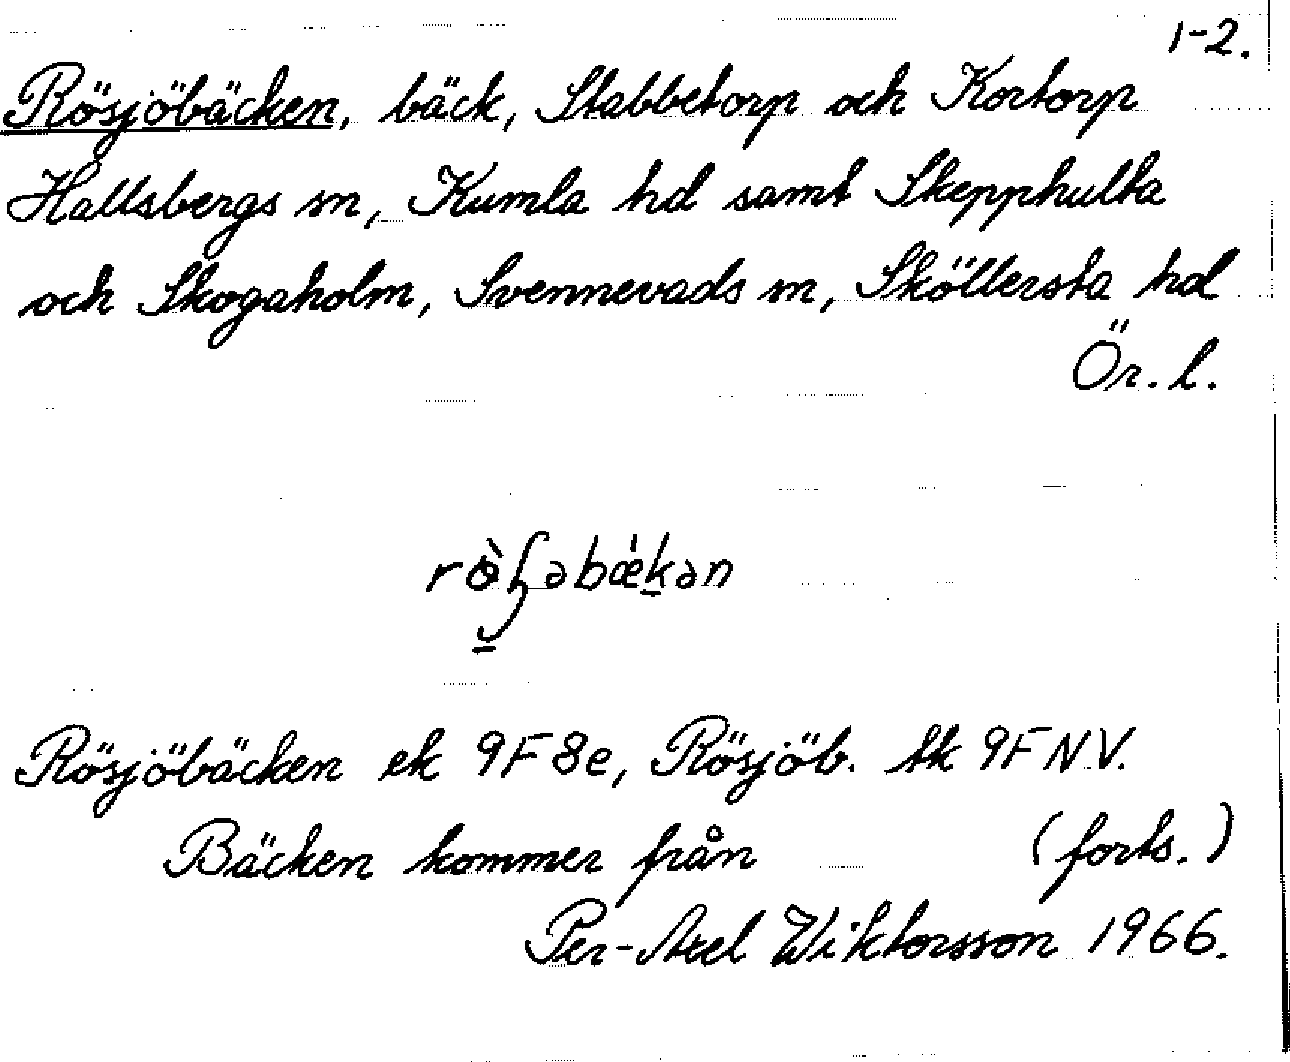 1-2.
Rösjöbäcken, bäck, Stabbetorp och Kortorp
Hallsbergs sn, Kumla hd samt Skepphulta
och Skogaholm, Svennevads sn, Sköllersta hd
Ör. l.
Rösjöbäcken ek 9F8e, Rösjöb. tk 9F NV.
Bäcken kommer från (forts.)
Per-Axel Wiktorsson 1966.